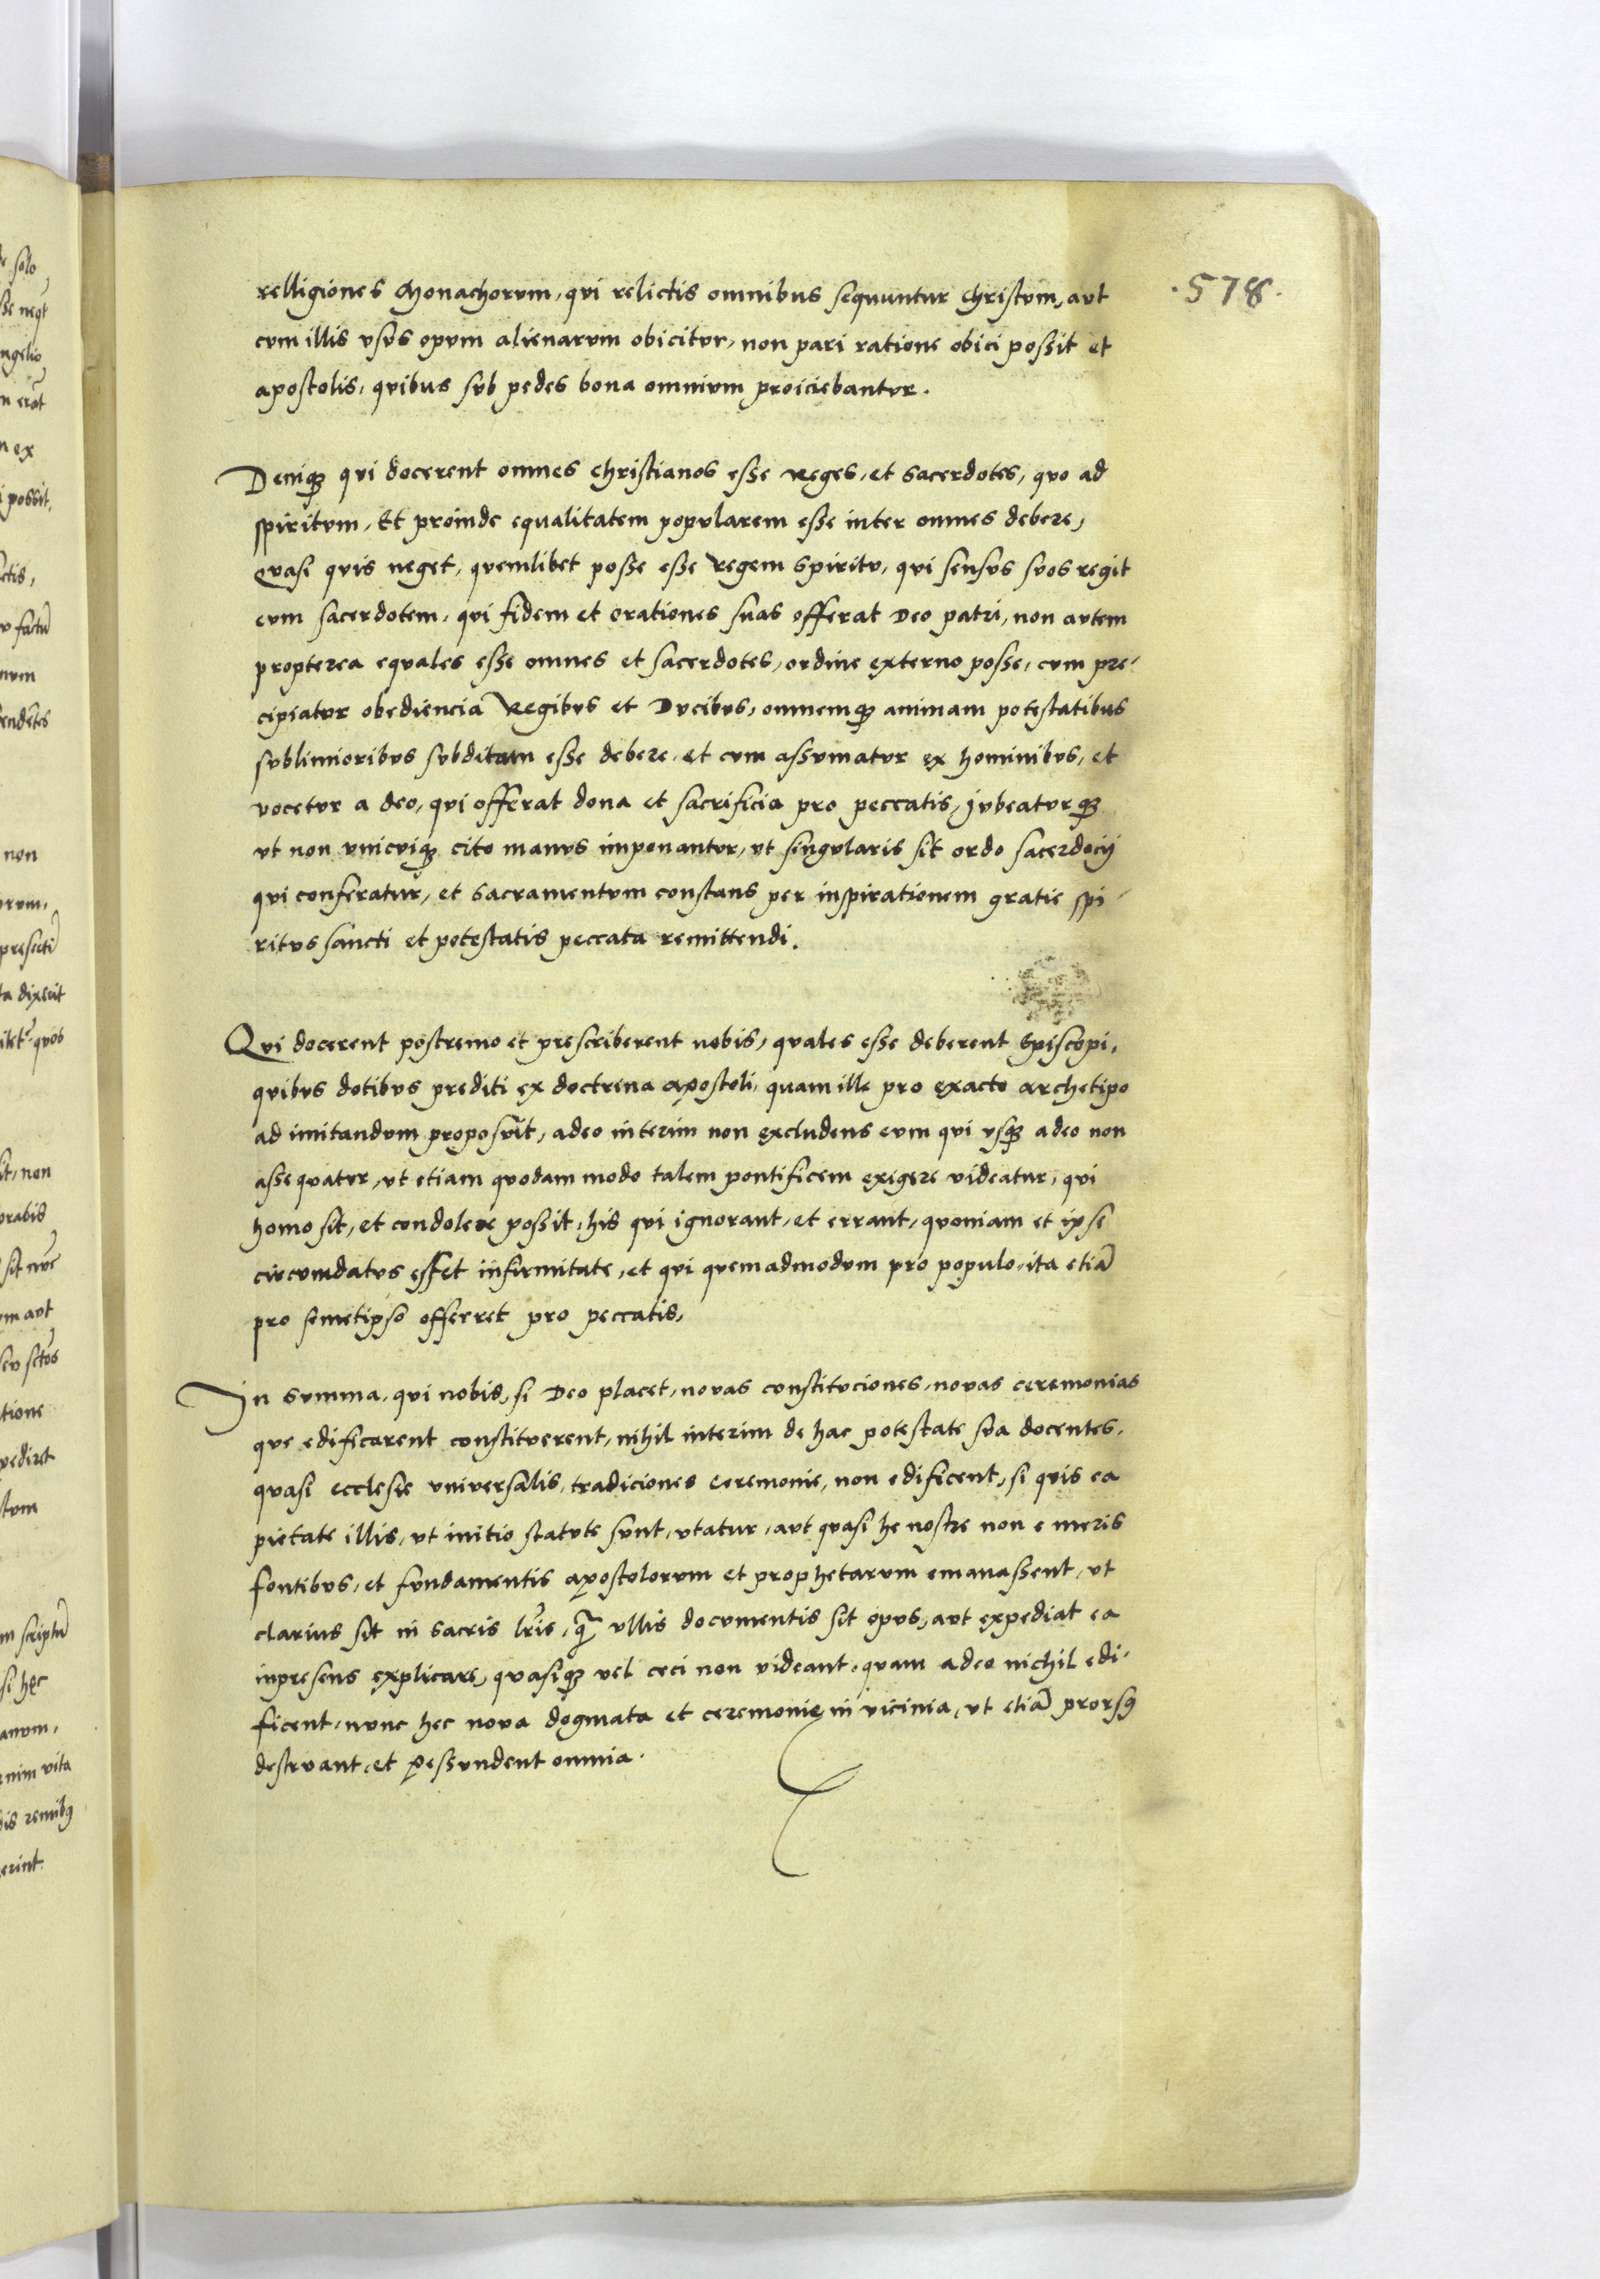 ·578·
relligiones Monachorum, qui relictis omnibus sequuntur Christum, aut
cum illis usus opum alienarum obicitur, non pari ratione obici possit et
apostolis, quibus sub pedes bona omnium proiciebantur.
Deniqꝫ qui docerent omnes christianos esse Reges, et sacerdotes, quo ad
spiritum, Et proinde equalitatem popularem esse inter omnes debere,
Quasi quis neget, quemlibet posse esse Regem spiritu, qui sensus suos regit
eum sacerdotem, qui fidem et orationes suas offerat Deo patri, non autem
propterea equales esse omnes et sacerdotes, ordine externo posse, cum pre-
cipiatur obedienciā Regibus et Ducibus, omnemqꝫ animam potestatibus
sublimioribus subditam esse debere, et cum assumatur ex hominibus, et
vocetur a deo, qui offerat dona et sacrificia pro peccatis, jubeaturqꝫ
ut non unicuiqꝫ cito manus imponantur, ut singularis sit ordo sacerdocij
qui conferatur, et sacramentum constans per inspirationem gratie spi-
ritus sancti et potestatis peccata remittendi.
Qui docerent postremo et prescriberent nobis, quales esse deberent Episcopi,
quibus dotibus prediti ex doctrina apostoli, quam ille pro exacto archetipo
ad imitandum proposuit, adeo interim non excludens eum qui usqꝫ adeo non
assequatur, ut etiam quodam modo talem pontificem exigere videatur, qui
homo sit, et condolere possit, his qui ignorant, et errant, quoniam et ipse
circumdatus esset infirmitate, et qui quemadmodum pro populo, ita etiā
pro semetipso offerret pro peccatis,
In summa, qui nobis, si Deo placet, novas constituciones, novas ceremonias
que edificarent constituerent, nihil interim de hac potestate sua docentes,
quasi ecclesie universalis, tradiciones ceremonie, non edificent, si quis ea
pietate illis, ut initio statute sunt, utatur, aut quasi he nostre non e meris
fontibus, et fundamentis apostolorum et prophetarum emanassent, ut
clarius sit in sacris lr̄is, qͣ ullis documentis sit opus, aut expediat ea
inpresens explicare, quasiqꝫ vel ceci non videant, quam adeo nichil edi-
ficent, nunc hec nova dogmata et ceremonie in vicinia, ut etiā prorsꝰ
destruant, et pessundent omnia.